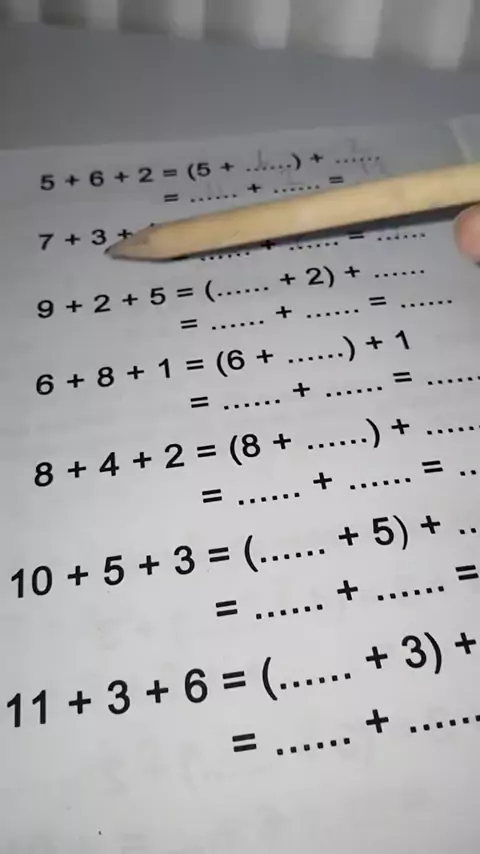 5 + 6 + 2 = (5 + ......) + ......
= ...... + ...... =
7 + 3 +
...... + ...... = ......
9 + 2 + 5 = (...... + 2) + ......
= ...... + ...... = ......
6 + 8 + 1 = (6 + ......) + 1
= ...... + ...... = ......
8 + 4 + 2 = (8 + ......) + ......
= ...... + ...... = ..
10 + 5 + 3 = (...... + 5) + ..
= ...... + ...... =
11 + 3 + 6 = (...... + 3) +
= ...... + ......